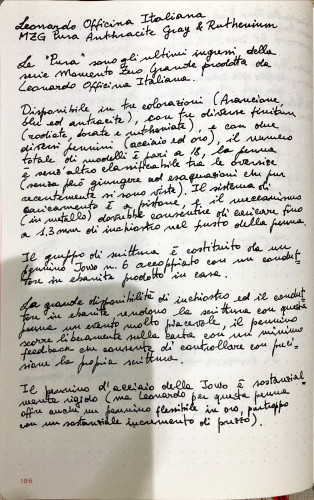 Leonardo Officina Italiana
MZG Pura Anthracite Gray & Ruthenium
Le "Pura" sono gli ultimi ingressi, della
serie Momento Zero Grande prodotta da
Leonardo Officina Italiana.
Disponibile in tre colorazioni (Arancione,
blu ed antracite), con tre diverse finiture
(rodiate, dorate e ruteniate), e con due
diversi pennini (acciaio ed oro), il numero
totale di modelli è pari a 18, la penna
è senz'altro classificabile tra le oversize
(senza però giungere ad esagerazioni che pur
recentemente si sono viste). Il sistema di
caricamento è a pistone, e il meccanismo
(in metallo) dovrebbe consentire di caricare fino
a 1,3 mm di inchiostro nel fusto della penna.
Il gruppo di scrittura è costituito da un
pennino Jowo n. 6 accoppiato con un condut-
tore in ebanite prodotto in casa.
La grande disponibilità di inchiostro ed il condut-
tore in ebanite rendono la scrittura con questa
penna un evento molto piacevole, il pennino
scorre liberamente sulla carta con un minimo
feedback che consente di controllare con preci-
sione la propria scrittura.
Il pennino d'acciaio della Jowo è sostanzial-
mente rigido (ma Leonardo per questa penna
offre anche un pennino flessibile in oro, purtroppo
con un sostanziale incremento di prezzo).
186